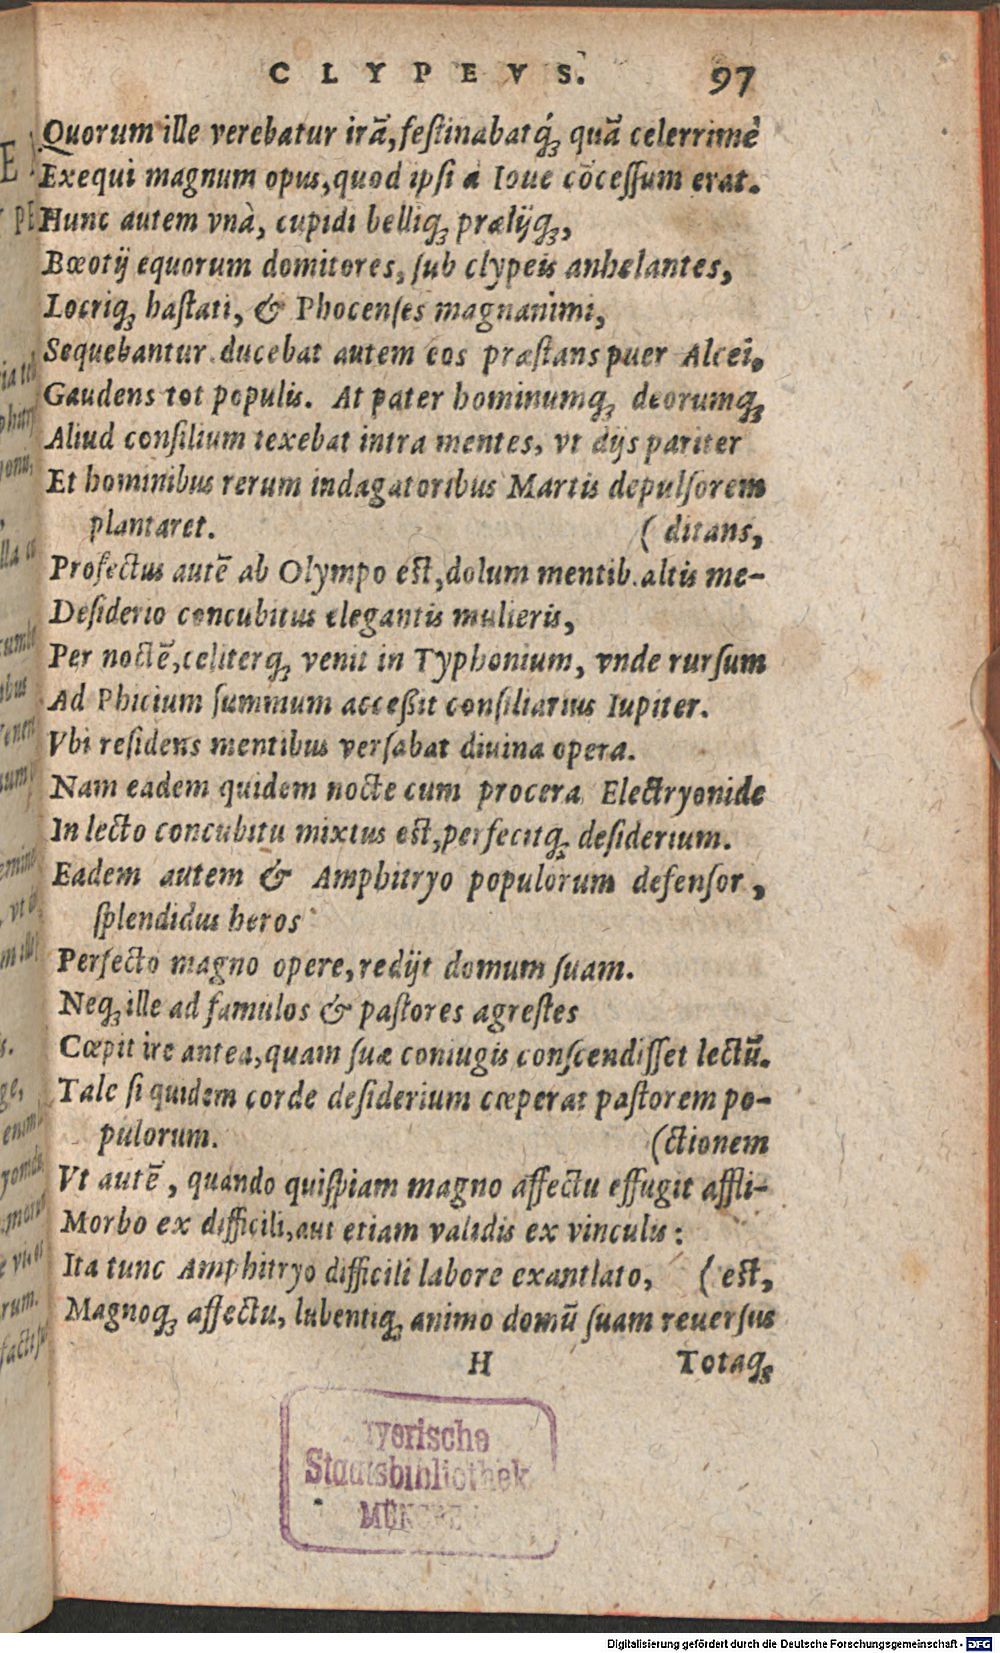 CLYPEVS. 97
Quorum ille verebatur irā, festinabatq́ꝫ quā celerrimè
Exequi magnum opus, quod ipsi à Ioue cōcessum erat.
Hunc autem vnà, cupidi belliqꝫ prælijqꝫ,
Bœotij equorum domitores, sub clypeis anhelantes,
Locriqꝫ hastati, & Phocenses magnanimi,
Sequebantur. ducebat autem eos præstans puer Alcei,
Gaudens tot populis. At pater hominumqꝫ deorumqꝫ
Aliud consilium texebat intra mentes, vt dijs pariter
Et hominibus rerum indagatoribus Martis depulsorem
plantaret. (ditans,
Profectus autē ab Olympo est, dolum mentib. altis me-
Desiderio concubitus elegantis mulieris,
Per noctē, celiterqꝫ venit in Typhonium, vnde rursum
Ad Phicium summum acceßit consiliarius Iupiter.
Vbi residens mentibus versabat diuina opera.
Nam eadem quidem nocte cum procera Electryonide
In lecto concubitu mixtus est, perfecitqꝫ desiderium.
Eadem autem & Amphitryo populorum defensor,
splendidus heros
Perfecto magno opere, redijt domum suam.
Neqꝫ ille ad famulos & pastores agrestes
Cœpit ire antea, quam suæ coniugis conscendisset lectū.
Tale si quidem corde desiderium cœperat pastorem po-
pulorum. (ctionem
Vt autē, quando quispiam magno affectu effugit affli-
Morbo ex difficili, aut etiam validis ex vinculis:
Ita tunc Amphitryo difficili labore exantlato, (est,
Magnoqꝫ affectu, lubentiqꝫ animo domū suam reuersus
H Totaqꝫ
yerische
Staatsbibliothek
MÜNCHEN
Digitalisierung gefördert durch die Deutsche Forschungsgemeinschaft - DFG